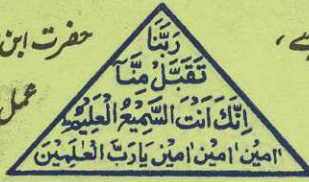 حضرت ابن
عمل
رَبَّنَا
تَقَبَّلْ مِنَّا
اِنَّكَ اَنْتَ السَّمِيْعُ الْعَلِيْمُ
اٰمِيْن اٰمِيْن اٰمِيْن يَارَبَّ الْعٰلَمِيْنَ